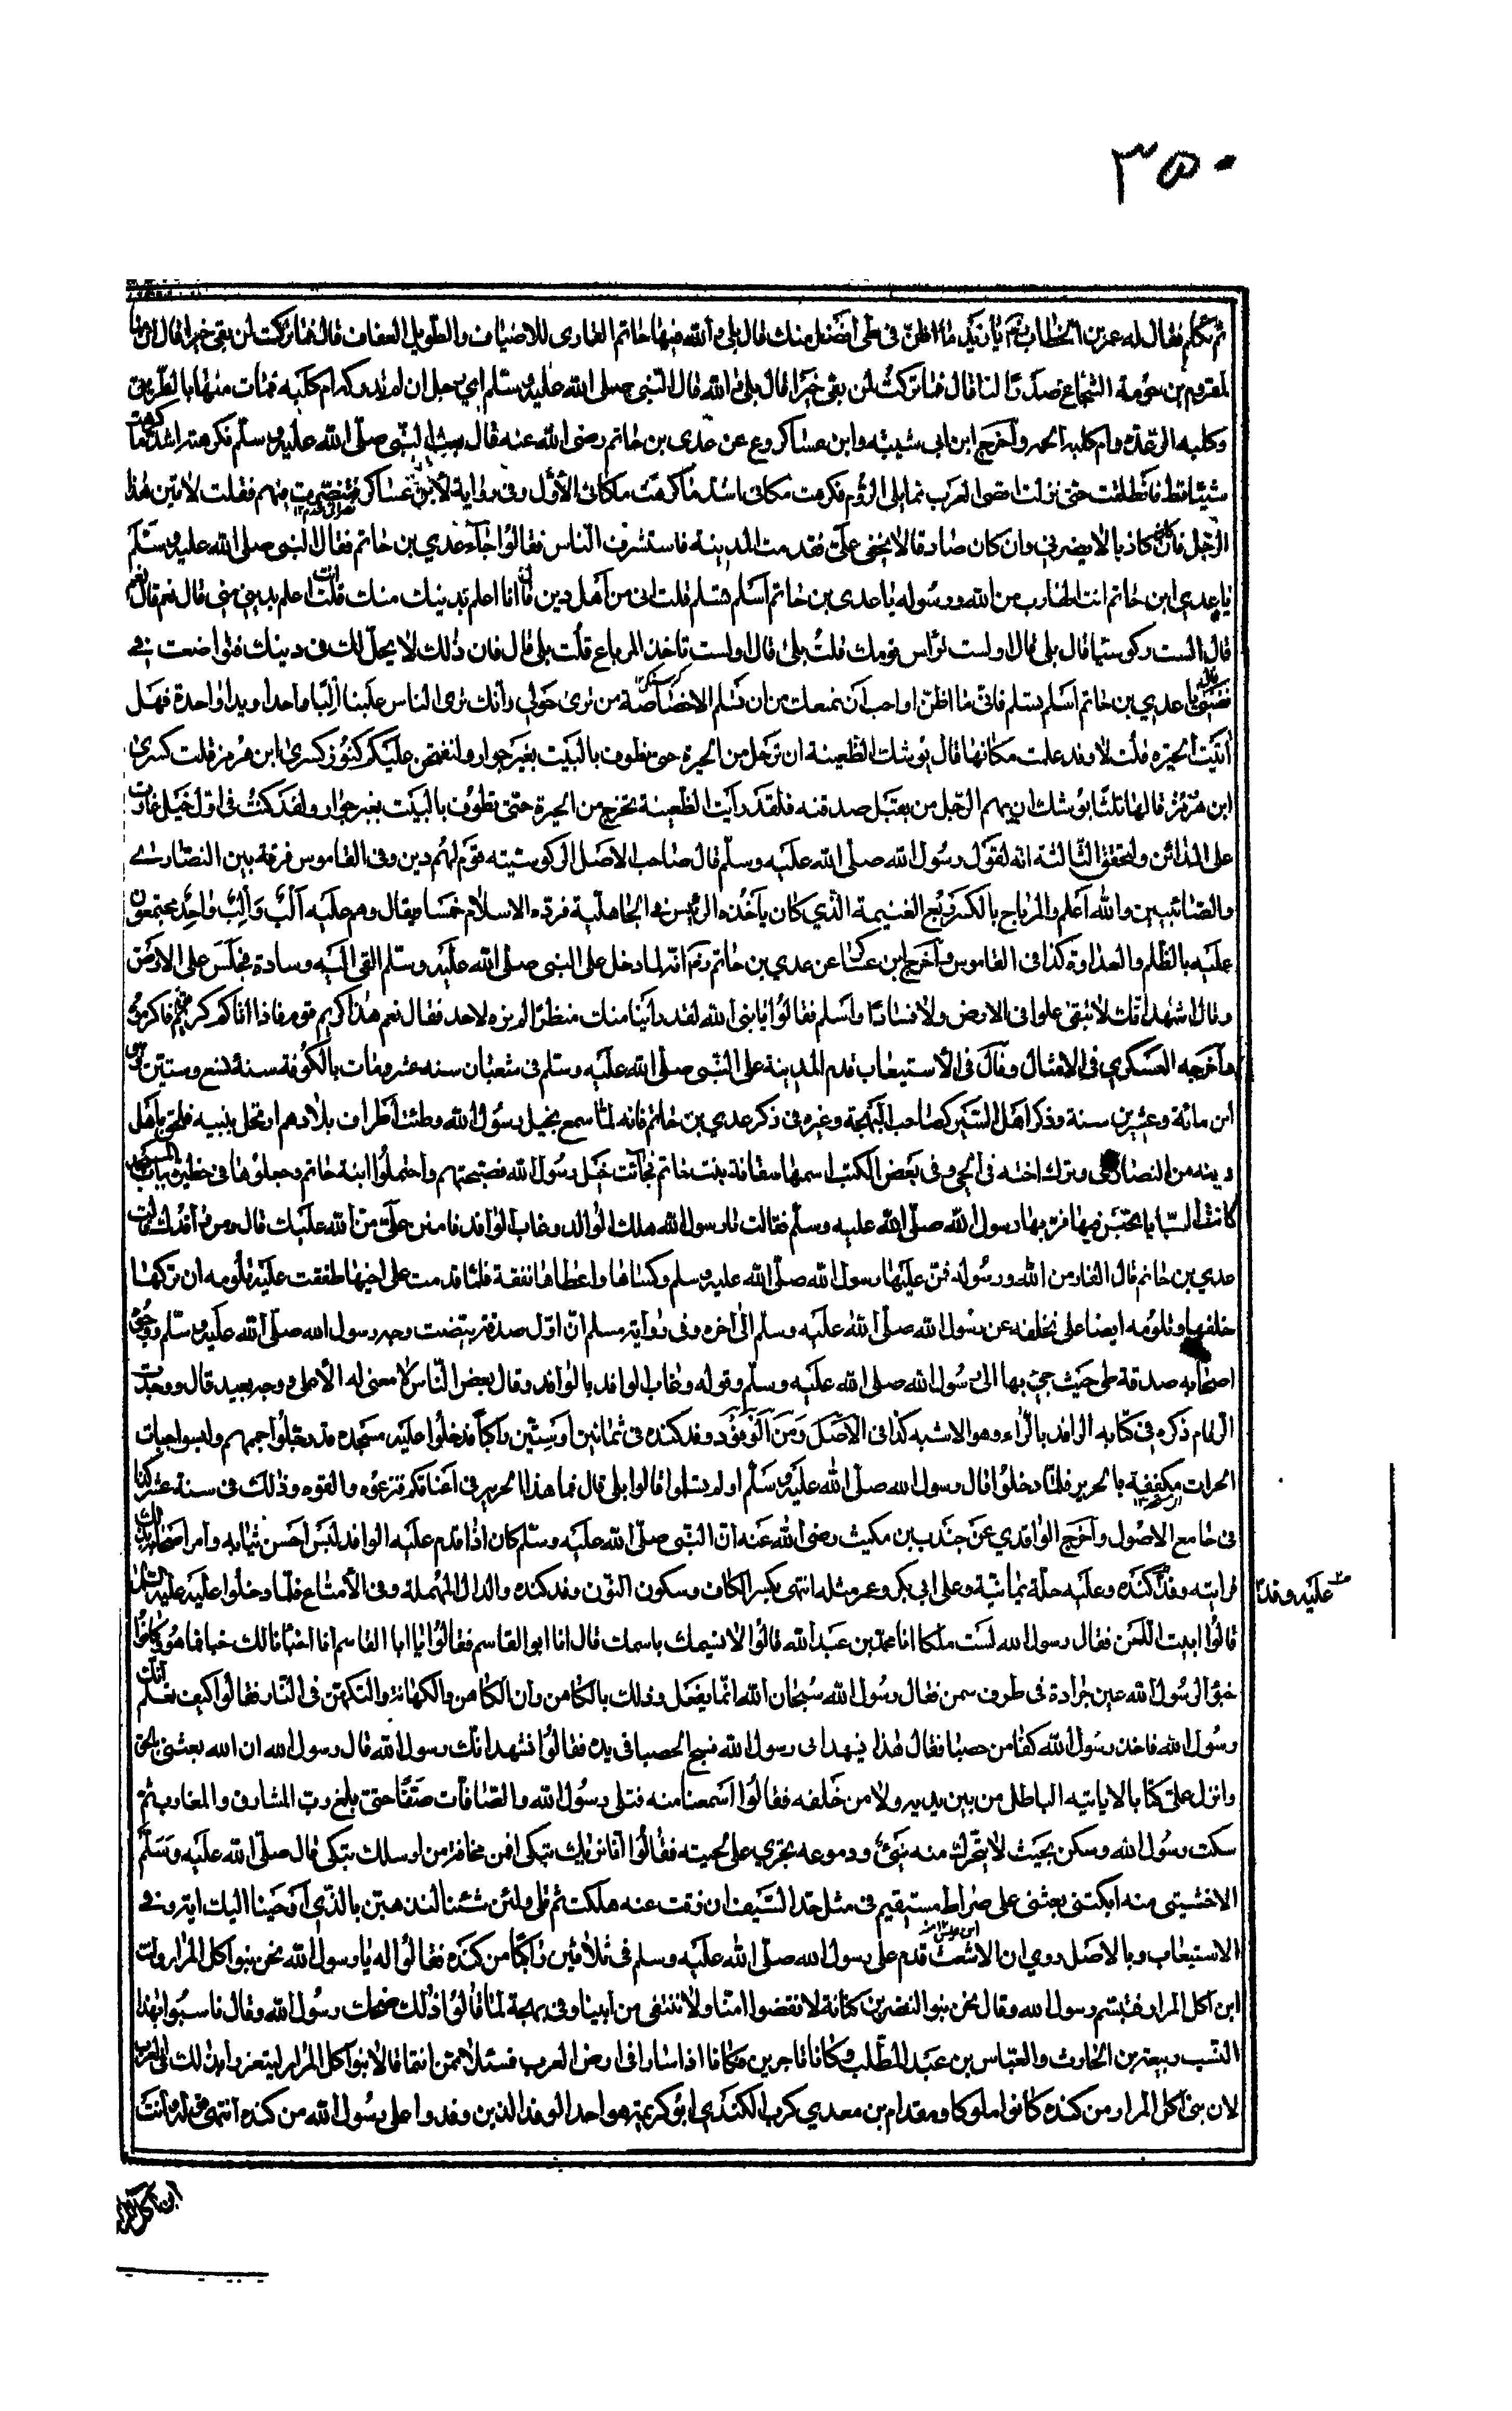 ٣٥٠
ثم تكلم فقال له عمر بن الخطاب يا زيد ما اظن في طي افضل منك قال بلى والله فيها حاتم القارى للاضياف والطويل العفاف قال فما تركت لمن بقى خيرا قال
بن حومة الشجاع صدرا لنا قال فما تركت لمن بقى خيرا قال بلى والله قال النبي صلى الله عليه وسلم اي رجل ان لم تدركه ام كلبه فمات منها بالطريق
ام كلبه الحمى واخرج ابن ابي شيبته وابن عساكر عن عدي بن حاتم رضي الله عنه قال بعث النبي صلى الله عليه وسلم فكرهته اشد ما كرهت
شيئا قط فانطلقت حتى نزلت اقصى العرب مما يلي الروم فكرهت مكانى اشد مما كرهت مكانى الأول وفي رواية لابن عساكر منهم فقلت لاتين هذا
الرجل فان كان كاذبا لا يضرني وان كان صادقا لا يخفى علي فقدمت المدينة فاستشرف الناس فقالوا جاء عدي بن حاتم فقال النبي صلى الله عليه وسلم
يا عدي ابن حاتم انت الهارب من الله ورسوله يا عدي بن حاتم اسلم تسلم قلت اني من اهل دين قال انا اعلم بدينك منك قلت انت اعلم بديني مني قال نعم قال
قال الست ركوسيا قال بلى قال اولست ترأس قومك قلت بلى قال اولست تاخذ المرباع قلت بلى قال فان ذلك لا يحل لك في دينك فتواضعت في
نفسي قال يا عدي بن حاتم اسلم تسلم فاني ما اظن او احب ان يمنعك من ان تسلم الا خصاصة من ترى حولي وانك ترى الناس علينا البا واحدا ويدا واحدة فهل
اتيت الحيرة قلت لا وقد علمت مكانها قال يوشك الظعينة ان ترحل من الحيرة حتى تطوف بالبيت بغير جوار ولتفتحن عليكم كنوز كسرى ابن هرمز قلت كسرى
ابن هرمز قالها ثلثا يوشك ان يهم الرجل من يقبل صدقته فلقد رأيت الظعينة تخرج من الحيرة حتى تطوف بالبيت بغير جوار ولقد كنت في اول خيل غارت
على المدائن ولتحقق الثالثة انه لقول رسول الله صلى الله عليه وسلم قال صاحب الاصل الركوسيته قوم لهم دين وفي القاموس فرقة بين النصارى
والصائبيين والله اعلم والمرباع بالكسر ربع الغنيمة الذي كان يأخذه الرئيس في الجاهلية فرده الاسلام خمسا ويقال وهم عليه الب والب واحد مجتمعون
عليه بالظلم والعداوة كذا في القاموس واخرج ابن عساكر عن عدي بن حاتم انه لما دخل على النبي صلى الله عليه وسلم القى اليه وسادة فجلس على الارض
وقال اشهد انك لا تبغى علوا في الارض ولا فسادا واسلم فقالوا يا نبي الله لقد رأينا منك منظرا لم نره لاحد فقال نعم هذا كريم قوم فاذا اتاكم كريم قوم فاكرموه
واخرجه العسكري في الامثال وقال في الاستيعاب قدم المدينة على النبي صلى الله عليه وسلم في شعبان سنه عشر ومات بالكوفة سنة تسع وستين وهو
ابن مائة وعشرين سنة وذكر اهل السير كصاحب البهجة وغيره في ذكر عدي بن حاتم فانه لما سمع بخيل رسول الله وطئت اطراف بلادهم ارتحل ببنيه فلحق باهل
دينه من النصارى وترك اخته في الحي وفي بعض الكتب اسمها سفانة بنت حاتم فجائت خيل رسول الله فصبحتهم واحتملوا ابنة حاتم وجعلوها في حظيرة بباب المسجد
كانت السبايا يحتبسن فيها فمر بها رسول الله صلى الله عليه وسلم فقالت يا رسول الله هلك الوالد وغاب الوافد فامنن علي من الله عليك قال ومن وافدك قالت
عدي بن حاتم قال الفار من الله ورسوله فمن عليها رسول الله صلى الله عليه وسلم وكساها واعطاها نفقة فلما قدمت على اخيها طفقت عليه تلومه ان تركها
خلفها وتلومه ايضا على تخلفه عن رسول الله صلى الله عليه وسلم الى اخره وفي رواية مسلم ان اول صدقة بيضت وجه رسول الله صلى الله عليه وسلم ووجوه
اصحابه صدقة طي حيث جئ بها الى رسول الله صلى الله عليه وسلم وقوله وغاب الوافد بالوافد وقال بعض الناس لا معنى له الا على وجه بعيد قال ووجدت
ذكره في كتابه الرافد بالراء وهو الاشبه كذا في الاصل ومن الوفود وفد كنده في ثمانين او ستين راكبا فدخلوا عليه مسجده قد رجلوا جممهم ولبسوا جبات
الحبرات مكففة بالحرير فلما دخلوا قال رسول الله صلى الله عليه وسلم اولم تسلموا قالوا بلى قال فما هذا الحرير في اعناقكم فنزعوه والقوه وذلك في سنة عشر كذا
في جامع الاصول واخرج الواقدي عن جندب بن مكيث رضي الله عنه ان النبي صلى الله عليه وسلم كان اذا قدم عليه الوافد لبس احسن ثيابه وامر اصحابه بذلك
فرايته وقد كنده وعليه حلة يمانية وعلى ابي بكر وعمر مثله انتهى بكسر الكاف وسكون النون وفد كنده والدال المهملة وفي الأمتاع فلما دخلوا عليه
عليه وفد
قالوا ابيت اللعن فقال رسول الله لست ملكا انا محمد بن عبد الله قالوا لا نسيمك باسمك قال انا ابو القاسم فقالوا يا ابا القاسم انا خبانا لك خبا فما هو وكانوا
خبؤا لرسول الله عين جرادة في ظرف سمن فقال رسول الله سبحان الله انما يفعل وذلك بالكاهن وان الكاهن والكهانة والتكهن في النار فقالوا كيف نعلم انك
رسول الله فاخذ رسول الله كفا من حصبا فقال هذا يشهد اني رسول الله فسبح الحصبا في يده فقالوا نشهد انك رسول الله قال رسول الله ان الله بعثني بالحق
وانزل علي كتابا لا ياتيه الباطل من بين يديه ولا من خلفه فقالوا اسمعنا منه فتلى رسول الله والصافات صفا حتى بلغ رب المشارق والمغارب ثم
سكت رسول الله وسكن بحيث لا يتحرك منه شئ ودموعه تجري على لحيته فقالوا انا نراك تبكى افمن مخافة من ارسلك تبكى قال صلى الله عليه وسلم
الا خشيتي منه ابكتني بعثني على صراط مستقيم في مثل حد السيف ان زغت عنه هلكت ثم تلى ولئن شئنا لنذهبن بالذي اوحينا اليك الايه وفي
الاستيعاب وبالاصل روي ان الاشعث قدم على رسول الله صلى الله عليه وسلم في ثلاثين راكبا من كنده فقالوا له يا رسول الله نحن بنو اكل المرار وانت
ابن اكل المرار فتبسم رسول الله وقال نحن بنو النضر بن كنانة لا نقضوا امنا ولا ننتفى من ابينا وفي بهجة لما قالوا ذلك ضحك رسول الله وقال ناسبوا بهذا
النسب ربيعة بن الحارث والعباس بن عبد المطلب وكانا تاجرين فكانا اذا سارا في ارض العرب فسئلا ممن انتما قالا بنو اكل المرار ليتعزروا بذلك في العرب
لان بني اكل المرار من كنده كانوا ملوكا ومقدام بن معدي كرب الكندي ابو كريمة هو احد الوفد الذين وفدوا على رسول الله من كنده انتهى قوله وانت
ابن اكل المرار